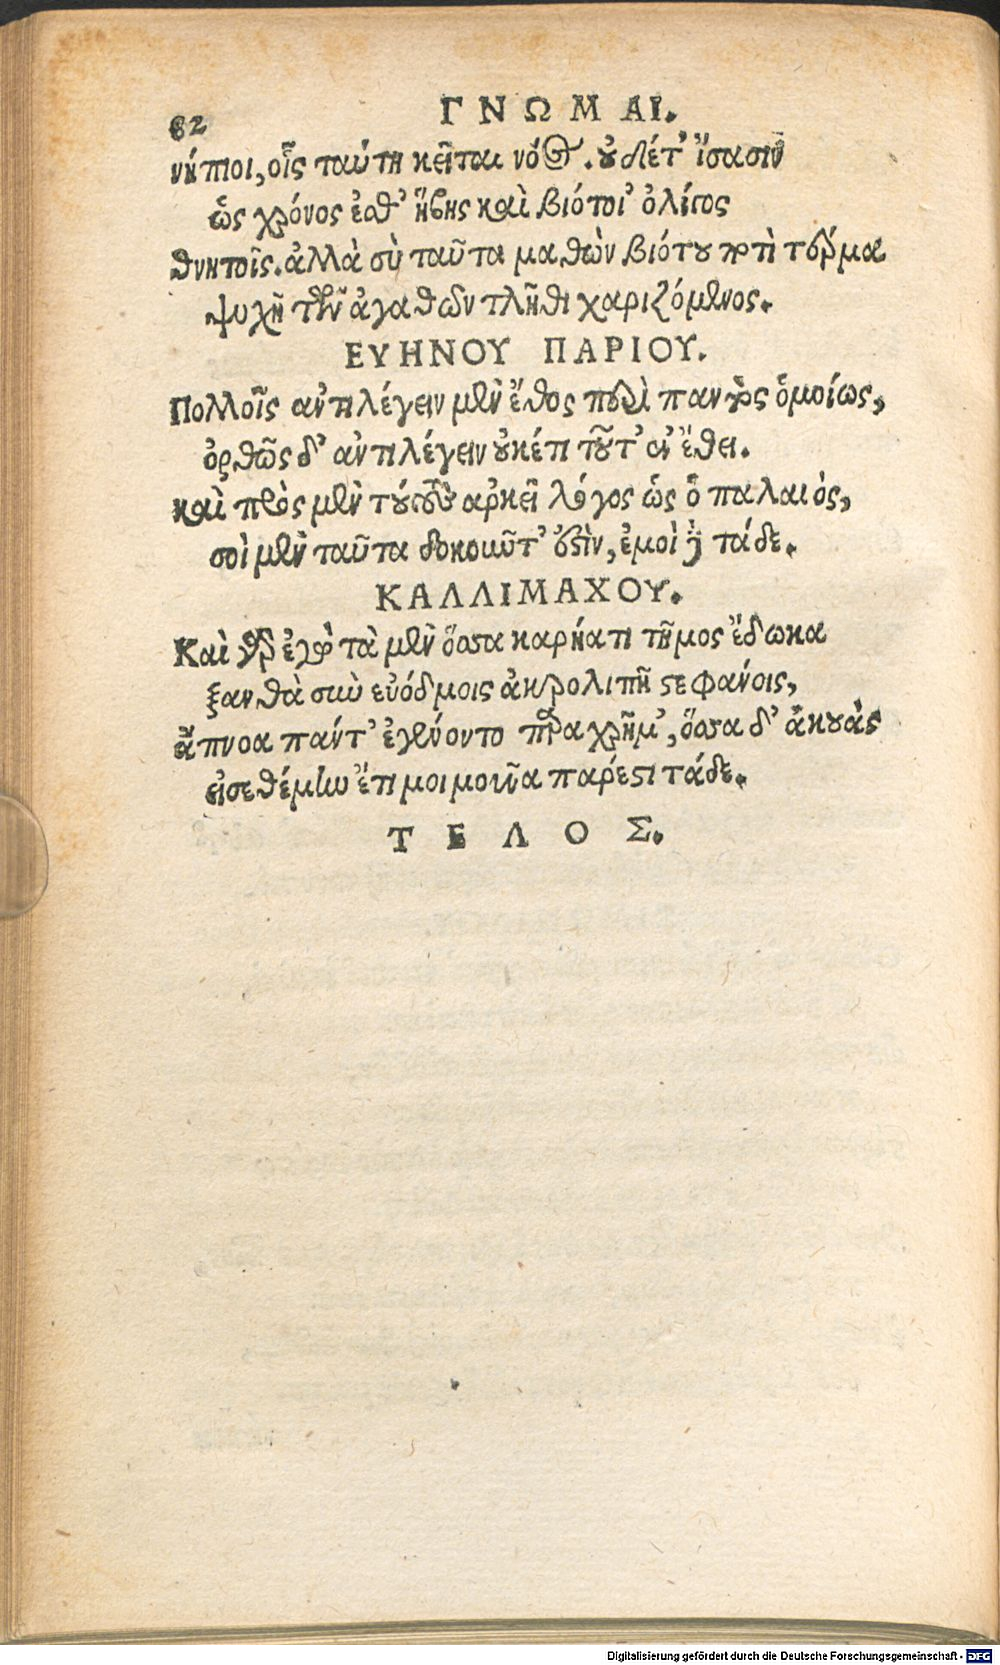 82 ΓΝΩΜΑΙ.
νήπιοι, οἷς ταύτῃ κεῖται νόος. οὐδέ τ' ἴσασιν
ὡς χρόνος ἐσθ' ἥβης καὶ βιότοι' ὀλίγος
θνητοῖς. ἀλλὰ σὺ ταῦτα μαθὼν βιότου ποτὶ τέρμα
ψυχῇ τῶν ἀγαθῶν τλῆθι χαριζόμενος.
ΕΥΗΝΟΥ ΠΑΡΙΟΥ.
Πολλοῖς ἀντιλέγειν μὲν ἔθος περὶ παντὸς ὁμοίως,
ὀρθῶς δ' ἀντιλέγειν οὐκέτι τοῦτ' ἐν ἔθει.
καὶ πρὸς μὲν τούτους ἀρκεῖ λόγος ὡς ὁ παλαιός,
σοὶ μὲν ταῦτα δοκοῦντ' ἐστὶν, ἐμοὶ δὲ τάδε.
ΚΑΛΛΙΜΑΧΟΥ.
Καὶ γὰρ ἐγὼ τὰ μὲν ὅσσα καρήατι τῆμος ἔδωκα
ξανθὰ σὺν εὐόδμοις ἁκρολιπῆ στεφάνοις,
ἄπνοα πάντ' ἐγένοντο παρὰ χρῆμ', ὅσσα δ' ἀκουὰς
εἰσεθέμην ἔτι μοι μοῦνα πάρεστι τάδε.
ΤΕΛΟΣ.
Digitalisierung gefördert durch die Deutsche Forschungsgemeinschaft - DFG